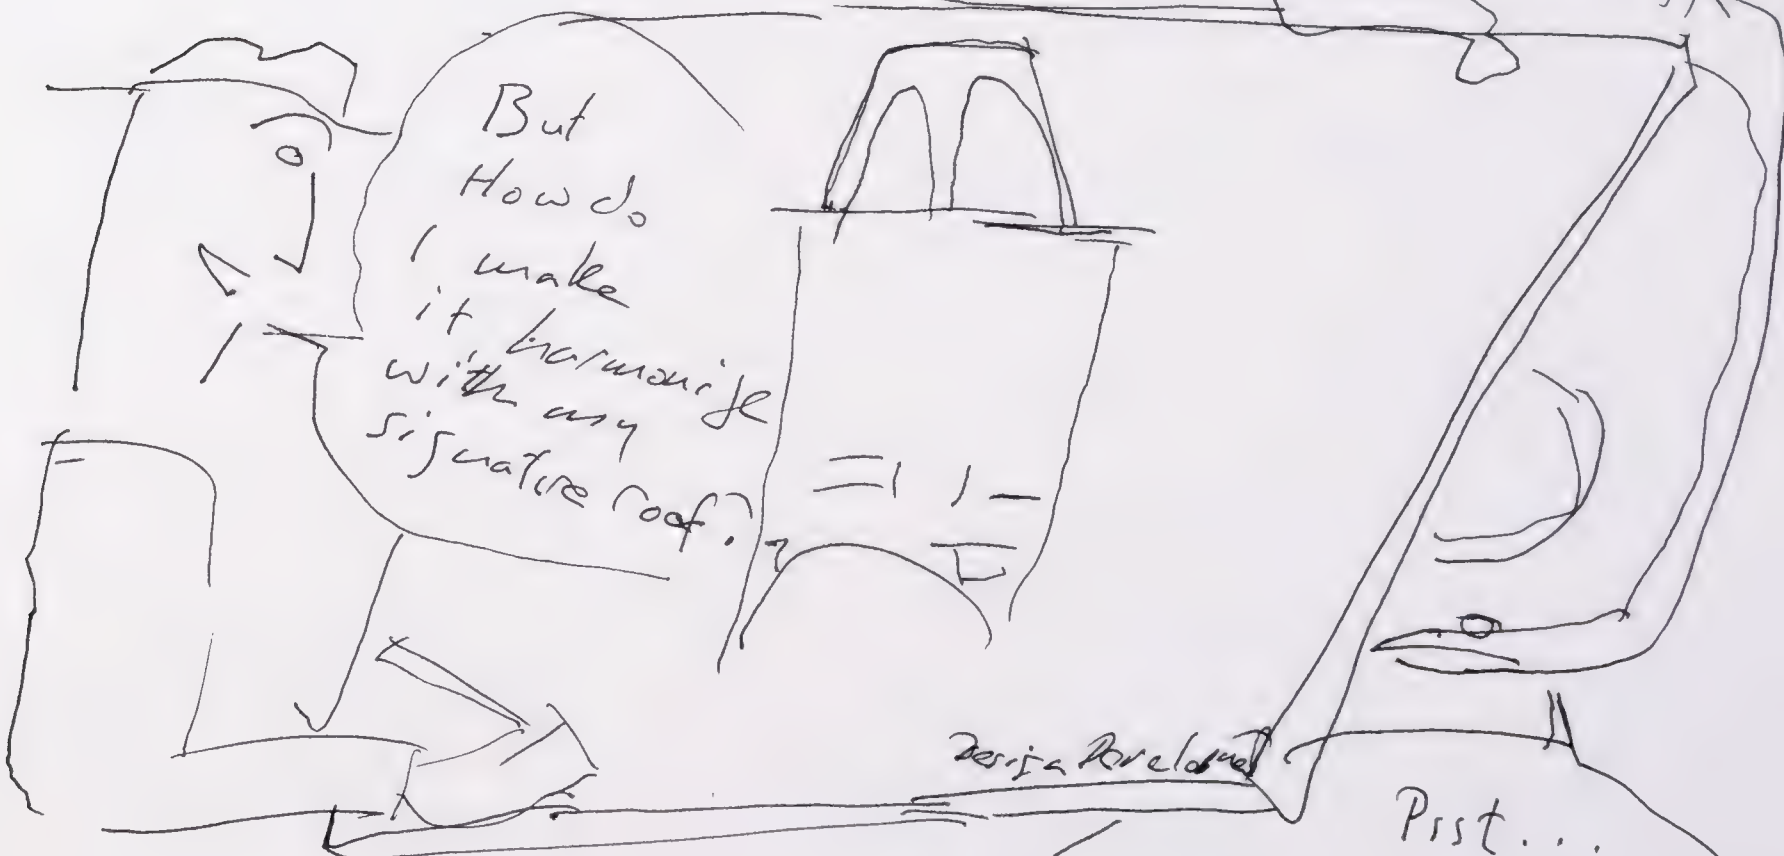 But
How do
I make
it harmonise
with my
signature roof?
Design Development
Psst...